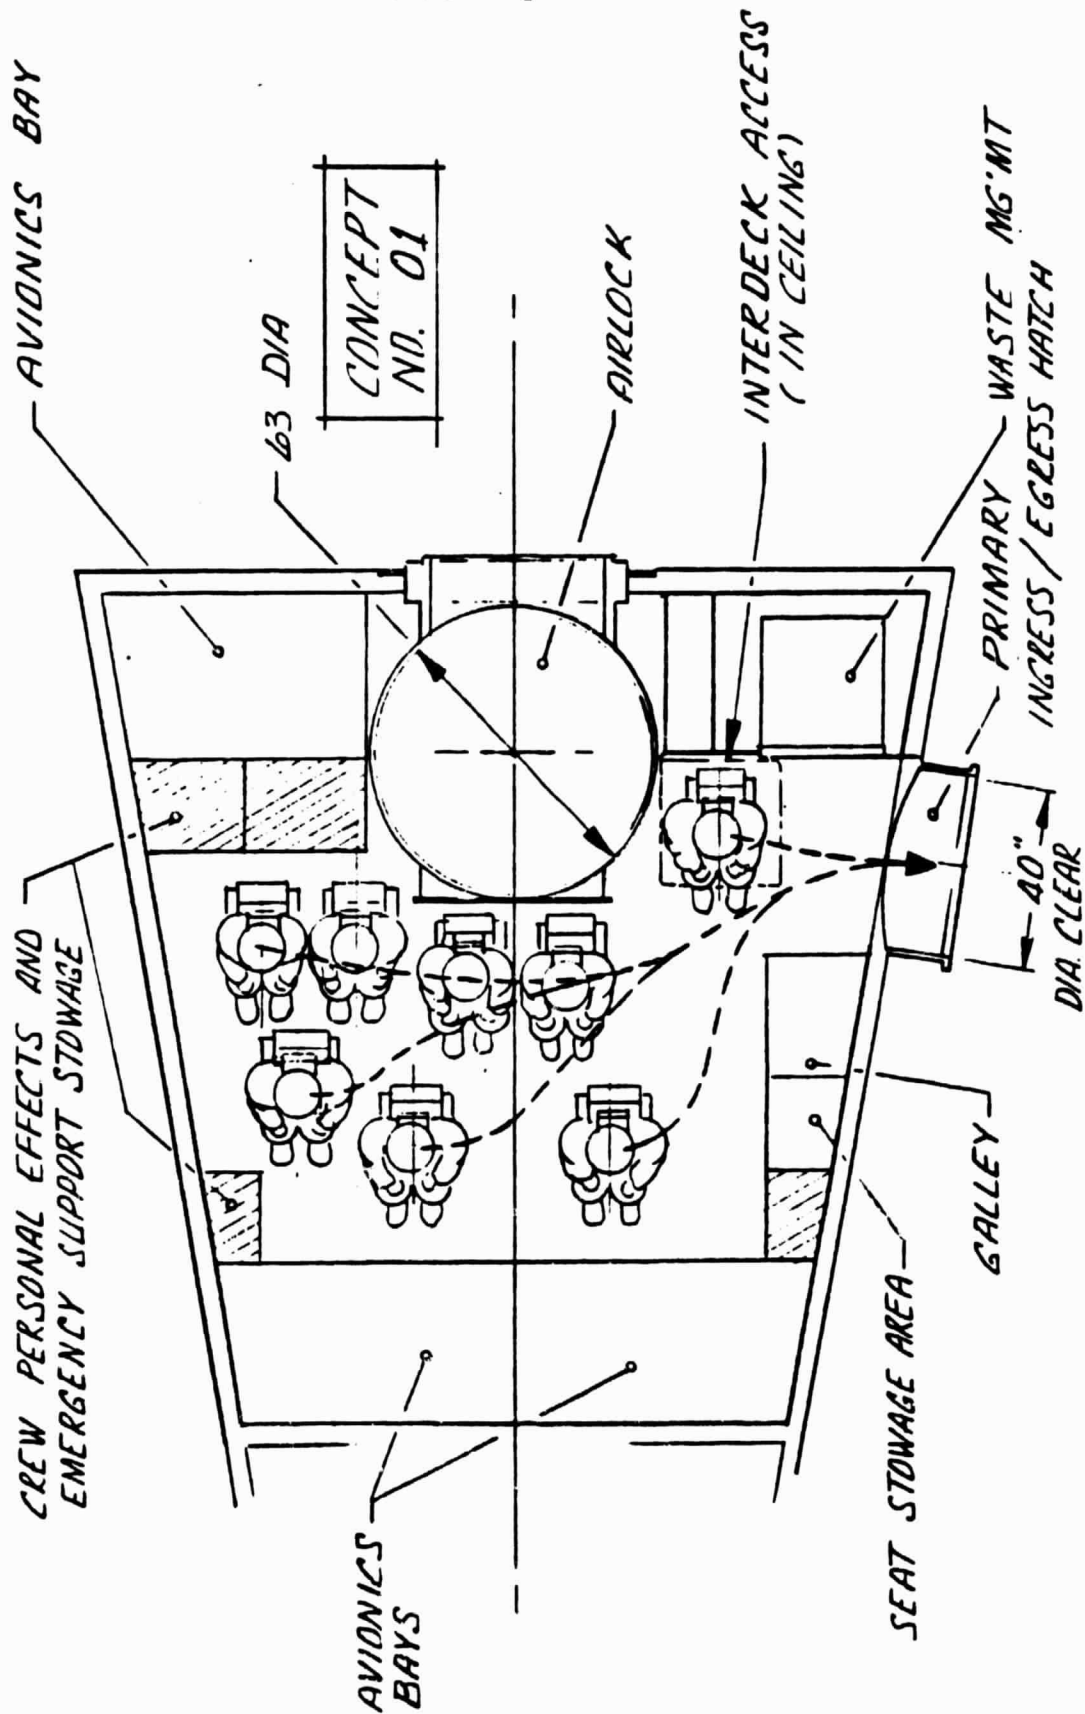 CREW PERSONAL EFFECTS AND
EMERGENCY SUPPORT STOWAGE
AVIONICS BAY
63 DIA
CONCEPT
NO. 01
AIRLOCK
INTERDECK ACCESS
(IN CEILING)
WASTE MG'MT
PRIMARY
INGRESS/EGRESS HATCH
40"
DIA. CLEAR
GALLEY
SEAT STOWAGE AREA
AVIONICS
BAYS